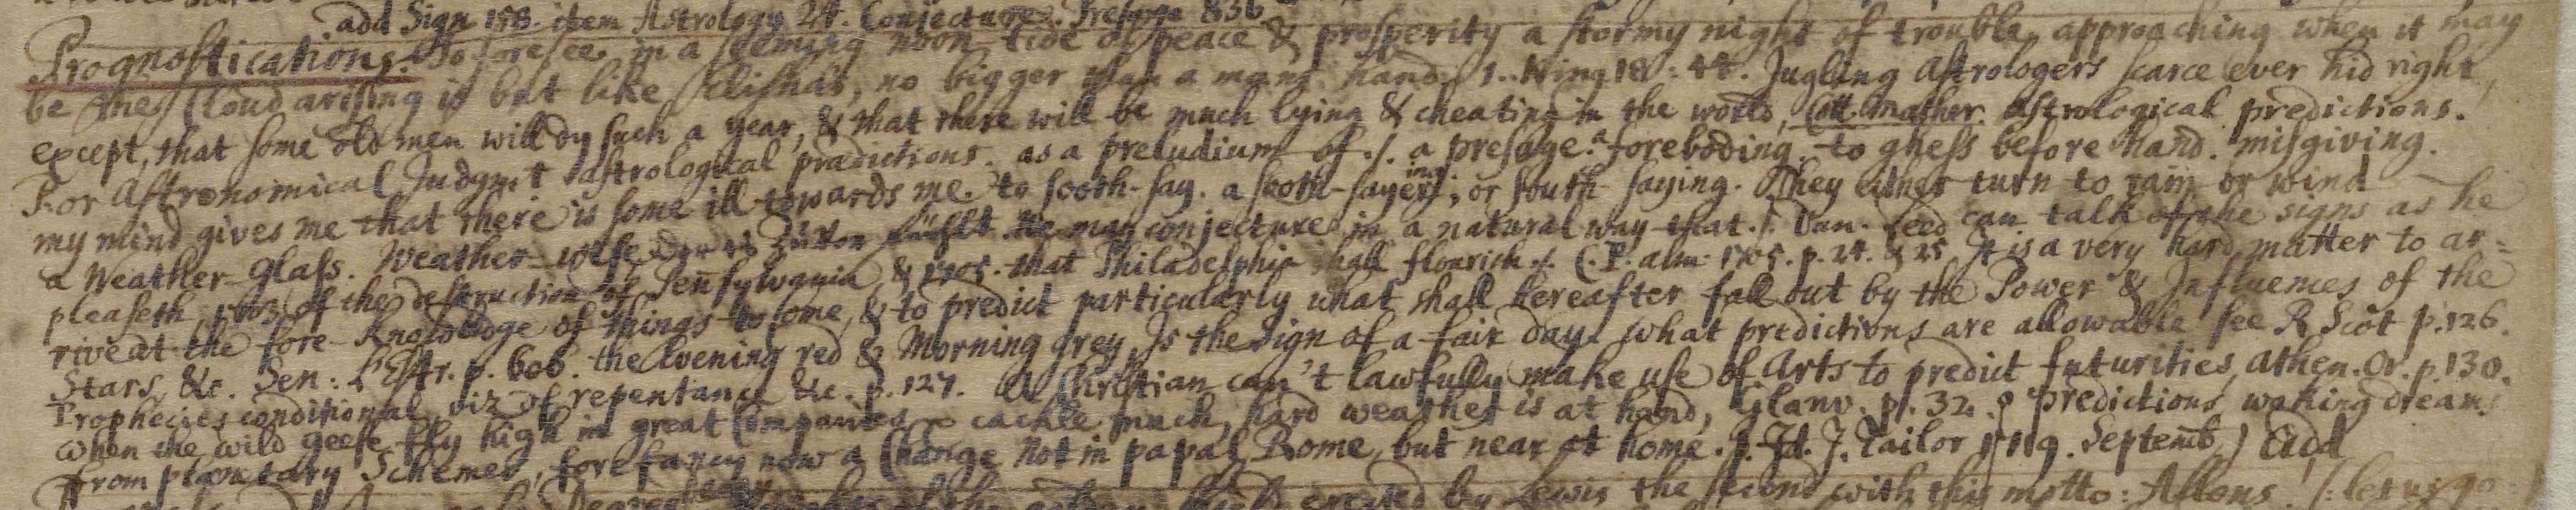 add Sign 158. item Astrology 24. Conjecture. Presage 836
Prognostications. To foresee in a seeming noon tide of peace & prosperity a stormy night of trouble approaching when it may
be the Cloud arising is but like Elishas, no bigger than a mans hand. 1. King. 18: 44. Jugling Astrologers scarce ever hid right,
except, that some old men will dy such a year, & that there will be much lying & cheating in the world, Cott. Mather. Astrological predictions.
For Astronomical Judgmt astrological prædictions. as a preludium of ./. a presage. a foreboding. to ghess before hand. misgiving.
my mind gives me that there is some ill towards me. to sooth-say. a sooth-sayer, ing; or south saying. They either turn to rain or wind
a Weather-Glass. Weather-wise. He may conjecture in a natural way that ./. Dan. Leed can talk of the signs as he
pleaseth, 1703 of the destruction of Pensylvania, & 1705. that Philadelphia shall flourish ./. C. P. alm. 1705. p. 24. & 25 It is a very hard matter to ar=
rive at the fore-Knowledge of things to come, & to predict particularly what shall hereafter fall out by the Power & Influences of the
Stars, &c. Sen: L'Estr. p. 606. the Evening red & Morning grey, Is the sign of a fair day. What predictions are allowable see R Scot p. 126.
Prophecies conditional viz. of repentance &c. p. 127. A Christian can't lawfully make use of Arts to predict futurities, Athen. Or. p. 130.
When the wild geese fly high in great Companies & cackle much, hard weather is at hand, Glanv. p. 32. predictions waking dreams
From planetary Schemes, fore fancy now a Change Not in papal Rome, but near at home. J. Id. J. Tailor 1719. Septemb.) Add
erected by Lewis the second with this motto: Allons. (: let us go